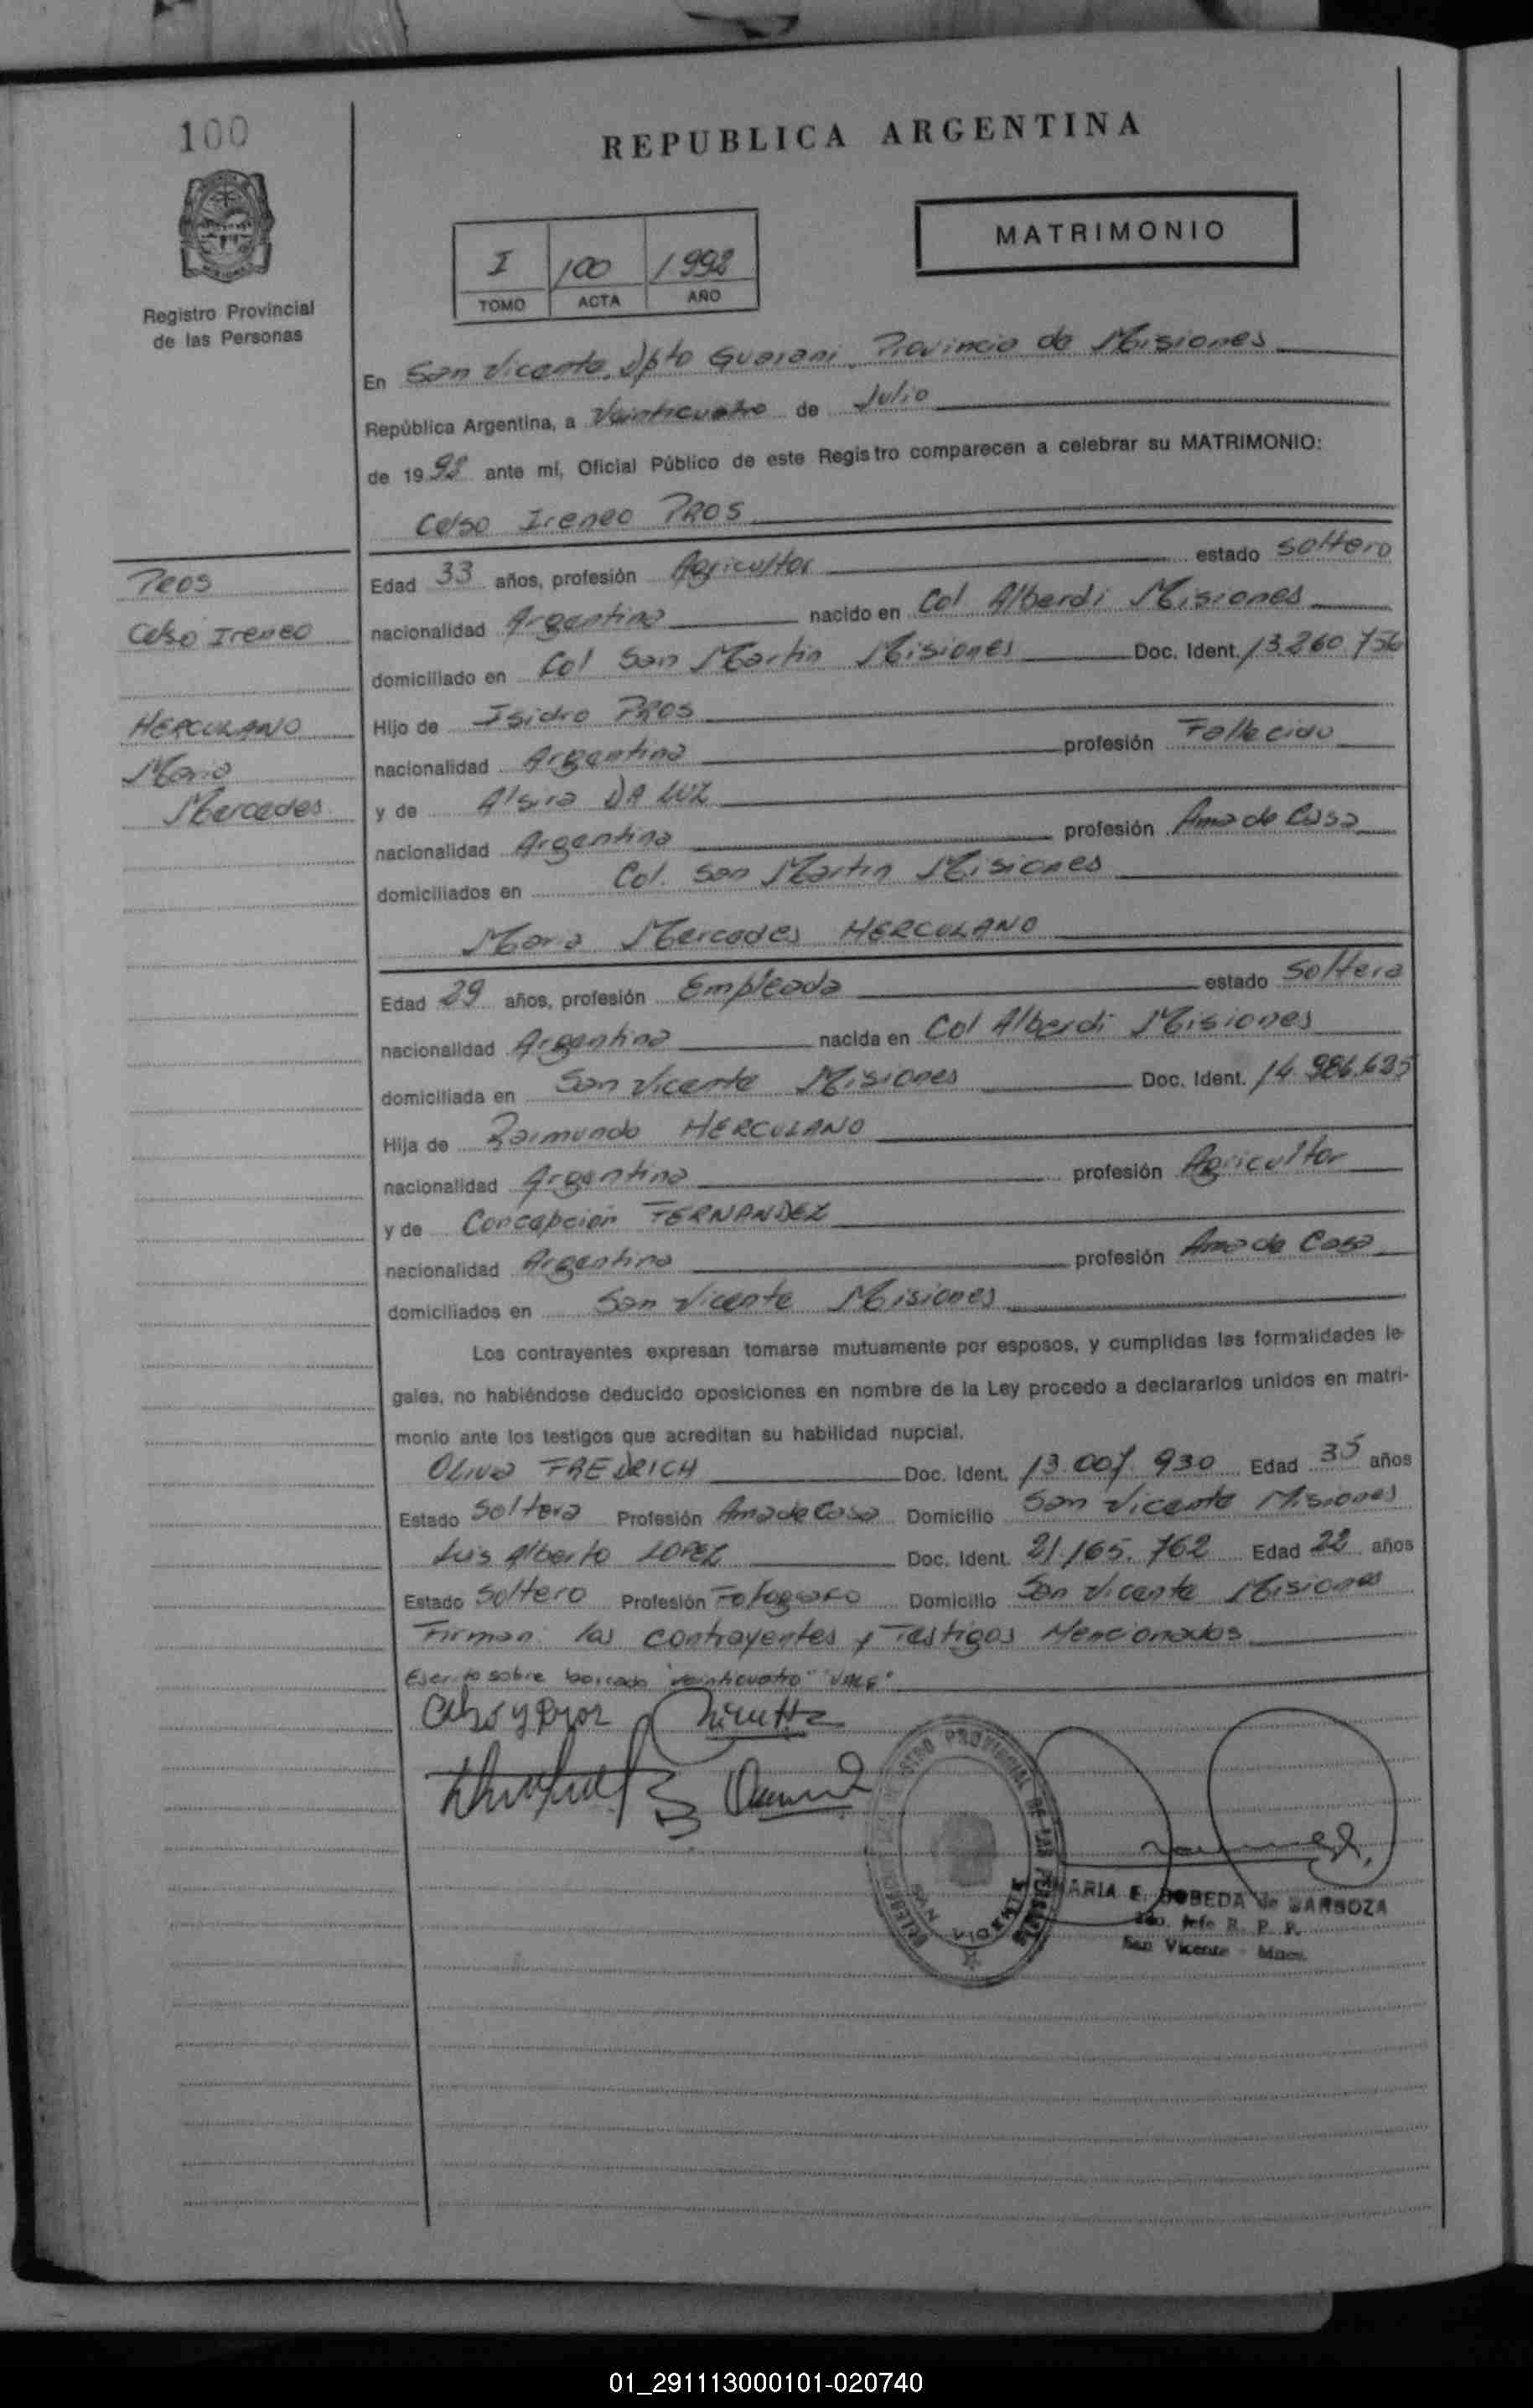 100
REPUBLICA ARGENTINA
MATRIMONIO
I 100 1992
TOMO ACTA AÑO
Registro Provincial
de las Personas
En San Vicente. Dpto Guarani. Provincia de Misiones
República Argentina, a Veinticuatro de Julio
de 19.92 ante mí, Oficial Público de este Registro comparecen a celebrar su MATRIMONIO:
Celso Ireneo PROS
PROS
Celso Ireneo
HERCULANO
Maria
Mercedes
Edad 33 años, profesión Agricultor estado soltero
nacionalidad Argentina nacido en Col Alberdi Misiones
domiciliado en Col San Martin Misiones Doc. Ident. 13.260.756
Hijo de Isidro PROS
nacionalidad Argentina profesión Fallecido
y de Alsira DA LUZ
nacionalidad Argentina profesión Ama de Casa
domiciliados en Col. San Martin Misiones
Maria Mercedes HERCULANO
Edad 29 años, profesión Empleada estado Soltera
nacionalidad Argentina nacida en Col Alberdi Misiones
domiciliada en San Vicente Misiones Doc. Ident. 14.986.635
Hija de Raimundo HERCULANO
nacionalidad Argentina profesión Agricultor
y de Concepcion FERNANDEZ
nacionalidad Argentina profesión Ama de Casa
domiciliados en San Vicente Misiones
Los contrayentes expresan tomarse mutuamente por esposos, y cumplidas las formalidades le-
gales, no habiéndose deducido oposiciones en nombre de la Ley procedo a declararlos unidos en matri-
monio ante los testigos que acreditan su habilidad nupcial.
Oliva FREDRICH Doc. Ident. 13.007.930 Edad 35 años
Estado Soltera Profesión Ama de Casa Domicilio San Vicente Misiones
Luis Alberto LOPEZ Doc. Ident. 21.165.762 Edad 22 años
Estado Soltero Profesión Fotografo Domicilio San Vicente Misiones
Firman: los contrayentes y Testigos Mencionados
Escrito sobre borrado "veinticuatro" "VALE"
REGISTRO PROVINCIAL DE LAS PERSONAS
MARIA E. BOBEDA de BARBOZA
2do. Jefe R. P. P.
San Vicente - Mnes.
01_291113000101-020740